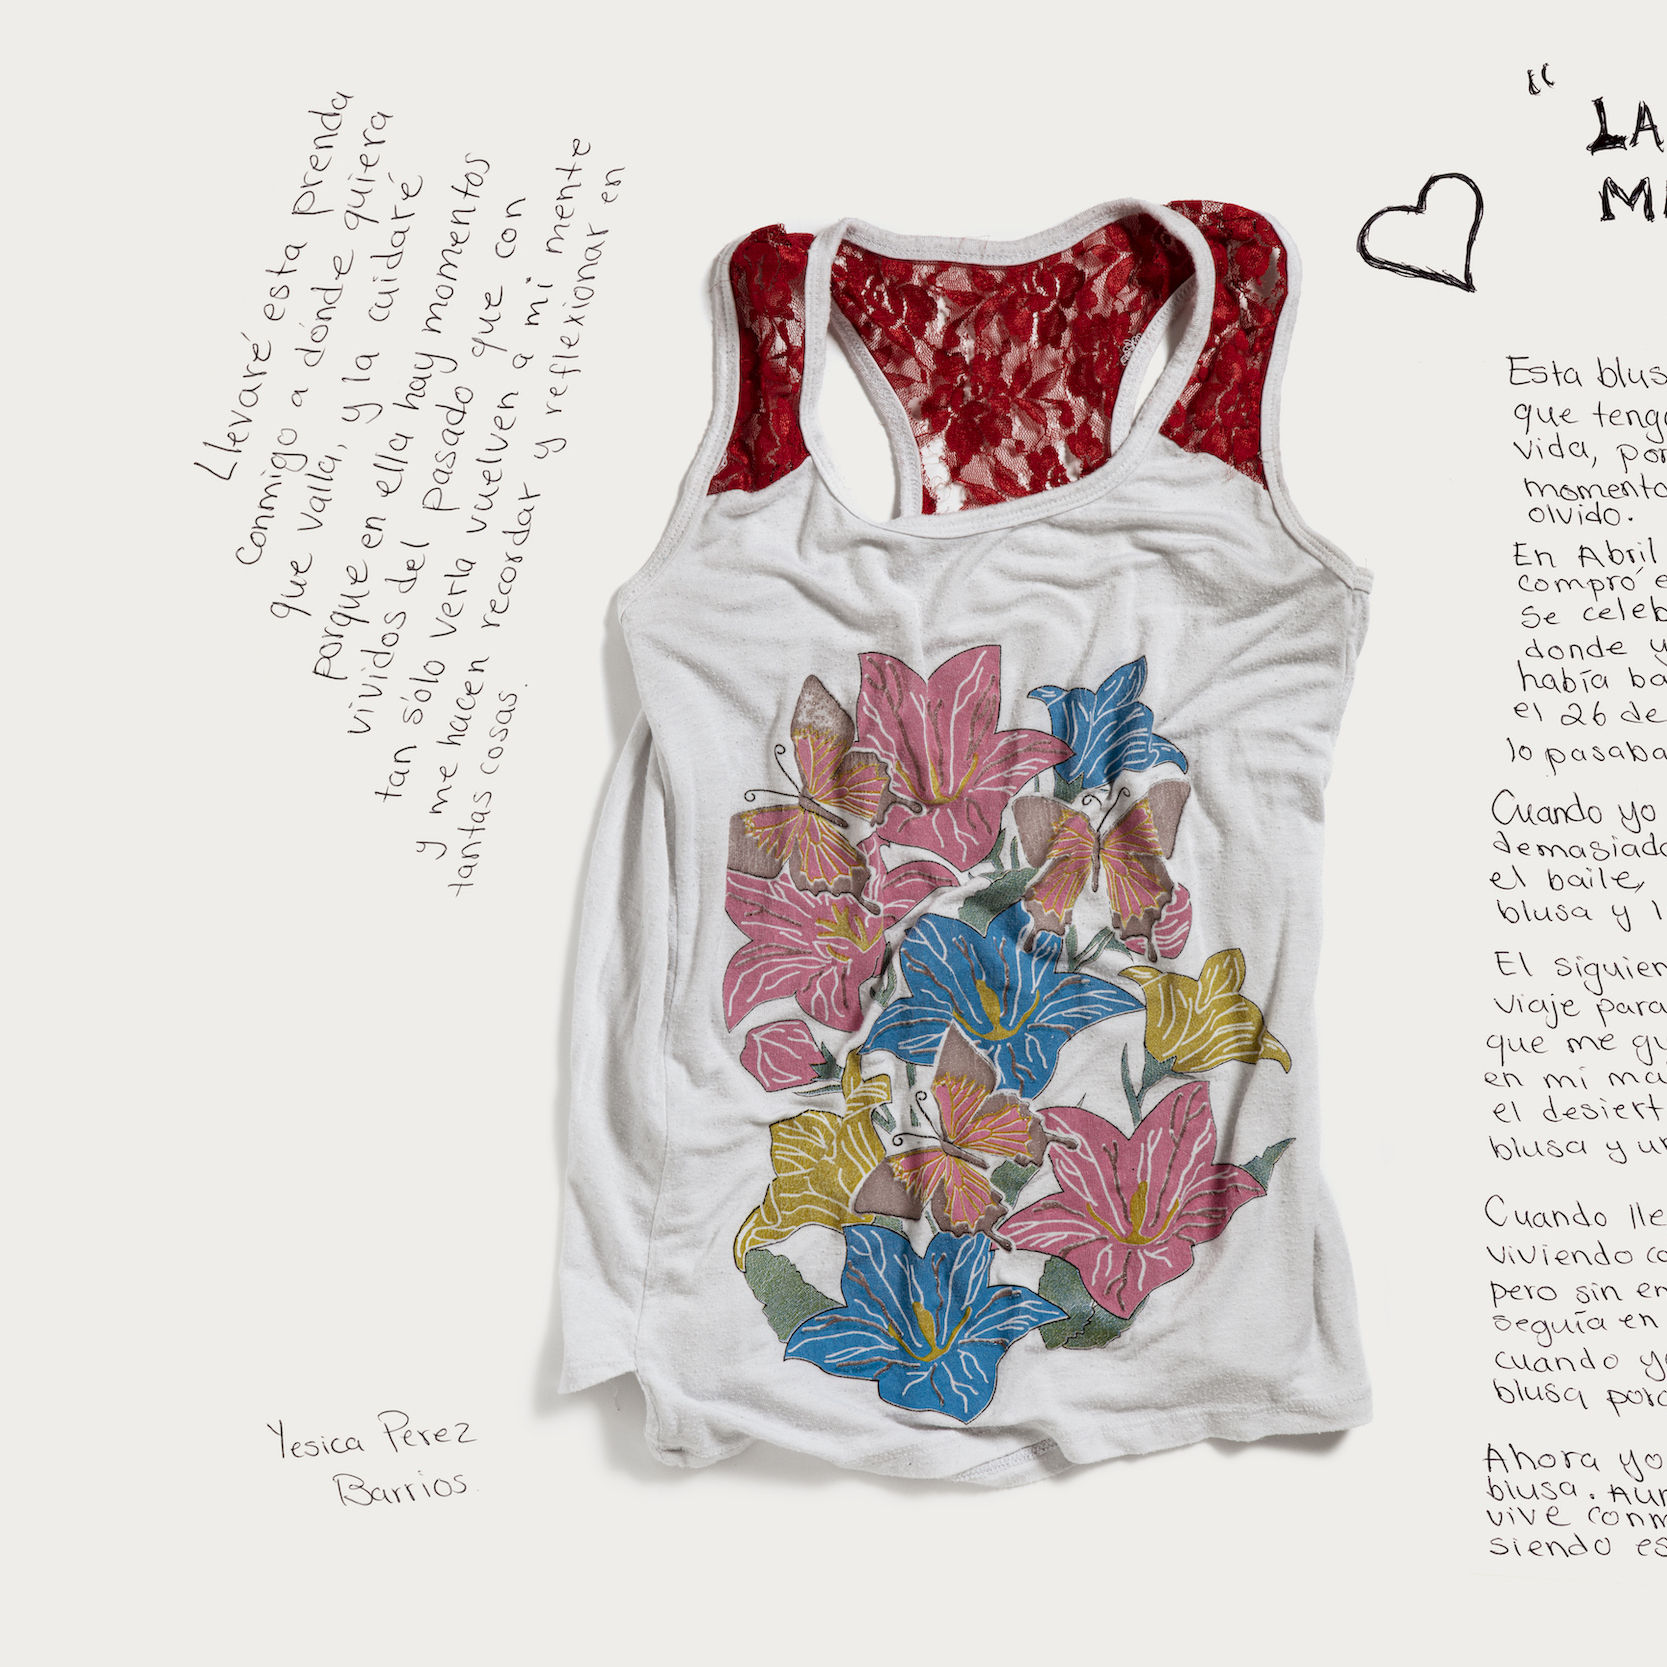 Llevaré esta prenda
conmigo a dónde quiera
que valla, y la cuidaré
porque en ella hay momentos
vividos del pasado que con
tan sólo verla vuelven a mi mente
y me hacen recordar y reflexionar en
tantas cosas.
Yesica Perez
Barrios.
“
LA
Esta blus
que teng
vida, por
momento
olvido.
En Abril
compró e
se celeb
donde y
había ba
el 26 de
lo pasaba
Cuando yo
demasiado
el baile,
blusa y l
El siguien
viaje para
que me gu
en mi ma
el desiert
blusa y un
Cuando lle
viviendo co
pero sin em
seguía en
cuando yo
blusa porq
Ahora yo
blusa. Aun
vive conm
siendo es